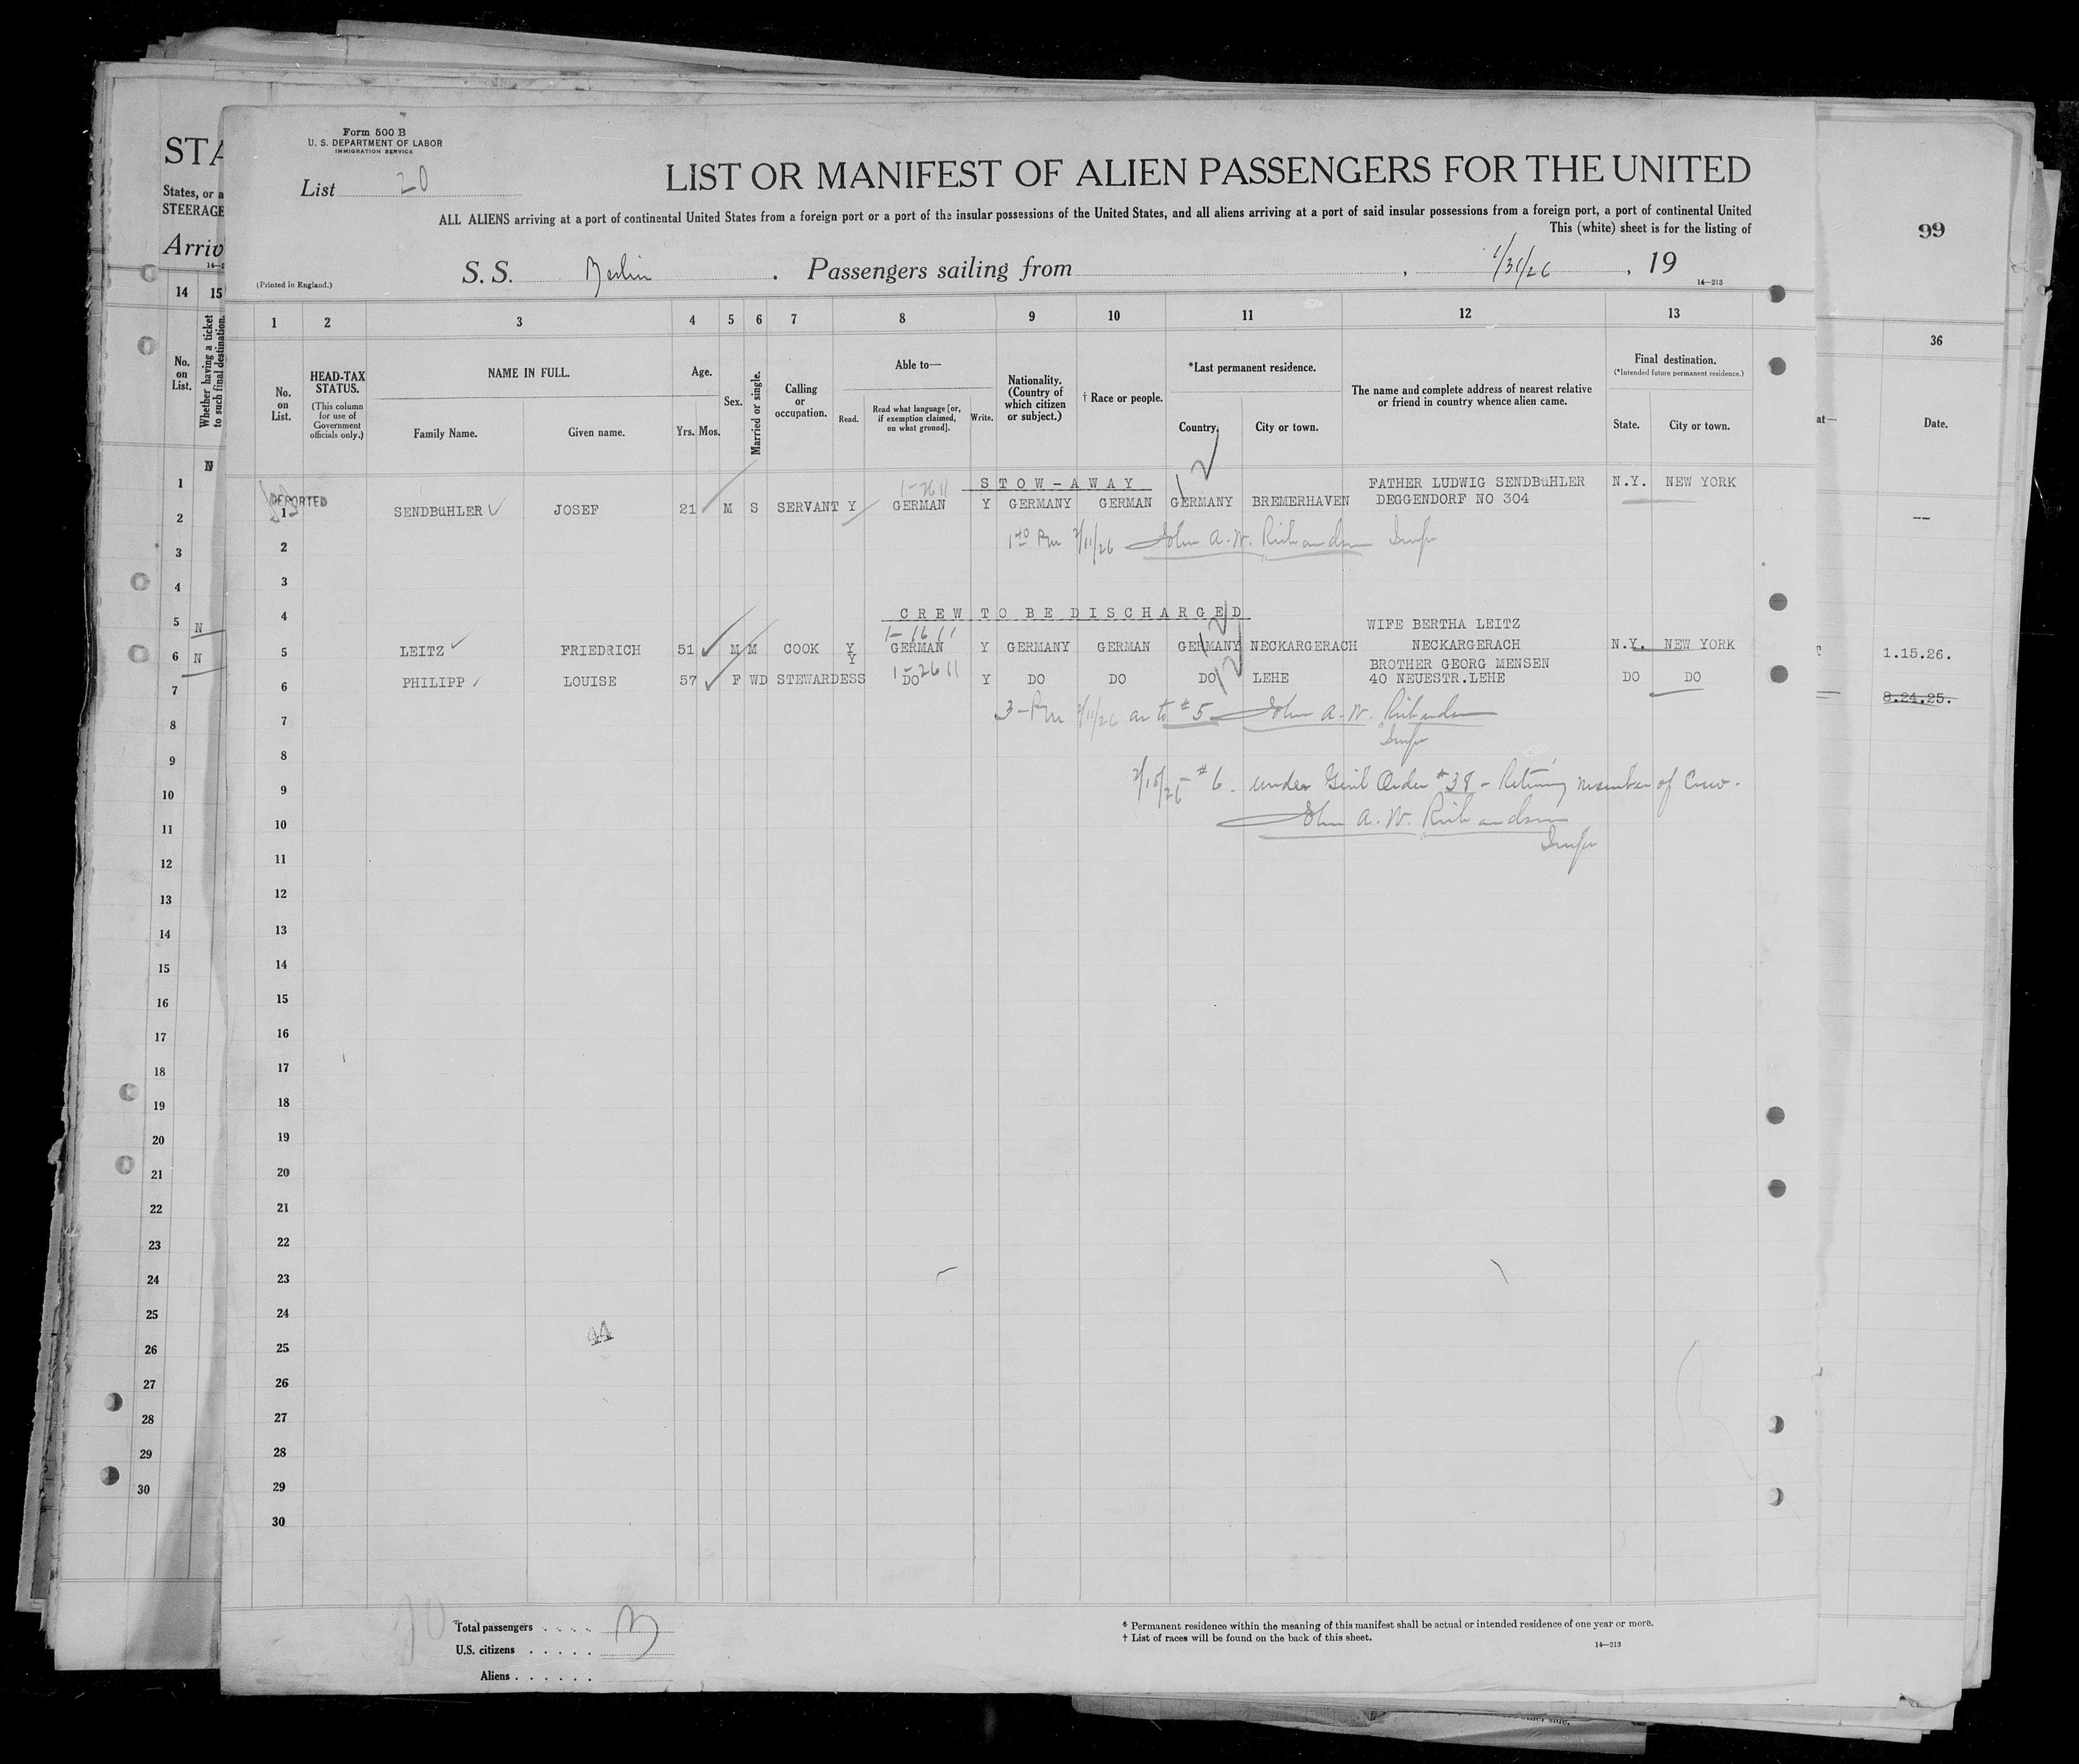 Form 500 B
U. S. DEPARTMENT OF LABOR
IMMIGRATION SERVICE
List 20
LIST OR MANIFEST OF ALIEN PASSENGERS FOR THE UNITED
ALL ALIENS arriving at a port of continental United States from a foreign port or a port of the insular possessions of the United States, and all aliens arriving at a port of said insular possessions from a foreign port, a port of continental United
This (white) sheet is for the listing of
S. S. Berlin . Passengers sailing from , 1/31/26 , 19
(Printed in England.)
14—213
1 2 3 4 5 6 7 8 9 10 11 12 13
No. on List.
HEAD-TAX STATUS.
(This column for use of Government officials only.)
NAME IN FULL.
Family Name.
Given name.
Age.
Yrs. Mos.
Sex.
Married or single.
Calling or occupation.
Able to—
Read.
Read what language [or, if exemption claimed, on what ground].
Write.
Nationality. (Country of which citizen or subject.)
† Race or people.
*Last permanent residence.
Country.
City or town.
The name and complete address of nearest relative or friend in country whence alien came.
Final destination.
(*Intended future permanent residence.)
State.
City or town.
STOW-AWAY
FATHER LUDWIG SENDBüHLER N.Y. NEW YORK
DEPORTED
1 SENDBüHLER JOSEF 21 M S SERVANT Y GERMAN Y GERMANY GERMAN GERMANY BREMERHAVEN DEGGENDORF NO 304
2 1 40 Pm 2/11/26 John A. W. Richardson Insp
3
4 CREW TO BE DISCHARGED
WIFE BERTHA LEITZ
5 LEITZ FRIEDRICH 51 M M COOK Y GERMAN Y GERMANY GERMAN GERMANY NECKARGERACH NECKARGERACH N.Y. NEW YORK
BROTHER GEORG MENSEN
6 PHILIPP LOUISE 57 F WD STEWARDESS Y DO Y DO DO DO LEHE 40 NEUESTR.LEHE DO DO
7 3 - Pm 2/11/26 as to #5 John A. W. Richardson
Insp
8
9 #6. under Genl Order #38 - Retúrning member of Crew.
10 John A. W. Richardson
Insp
11
12
13
14
15
16
17
18
19
20
21
22
23
24
25
26
27
28
29
30
44
Total passengers . . . . 3
U.S. citizens . . . . .
Aliens . . . . . .
* Permanent residence within the meaning of this manifest shall be actual or intended residence of one year or more.
† List of races will be found on the back of this sheet.
14—213
STA
States, or a
STEERAGE
Arriv
14 15
No. on List.
Whether having a ticket to such final destination.
1
2
3
4
5 N
6 N
7
8
9
10
11
12
13
14
15
16
17
18
19
20
21
22
23
24
25
26
27
28
29
30
99
36
at—
Date.
1.15.26.
8.24.25.